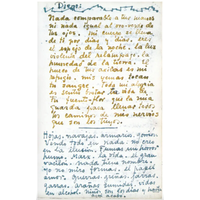 Diego:
Nada comparable a tus manos
ni nada igual al oro-verde de
tus ojos. Mi cuerpo se llena
de ti por días y días. eres
el espejo de la noche. la luz
violenta del relámpago. la
humedad de la tierra. El
hueco de tus axilas es mi
refugio. mis yemas tocan
tu sangre. Toda mi alegría
es sentir brotar la vida de
tu fuente-flor que la mía
guarda para llenar todos
los caminos de mis nervios
que son los tuyos.
Hojas. navajas. armario. gorrión
Vendo todo en nada. no creo
en la ilusión. Fumas un horror
humo. Marx. la vida. el gran
vacilón. nada tiene nombre.
yo no miro formas. el papel
amor. guerras. greñas. jarras.
garras. arañas sumidas. vidas
en alcohol. niños son los días y hasta
aquí acabó.